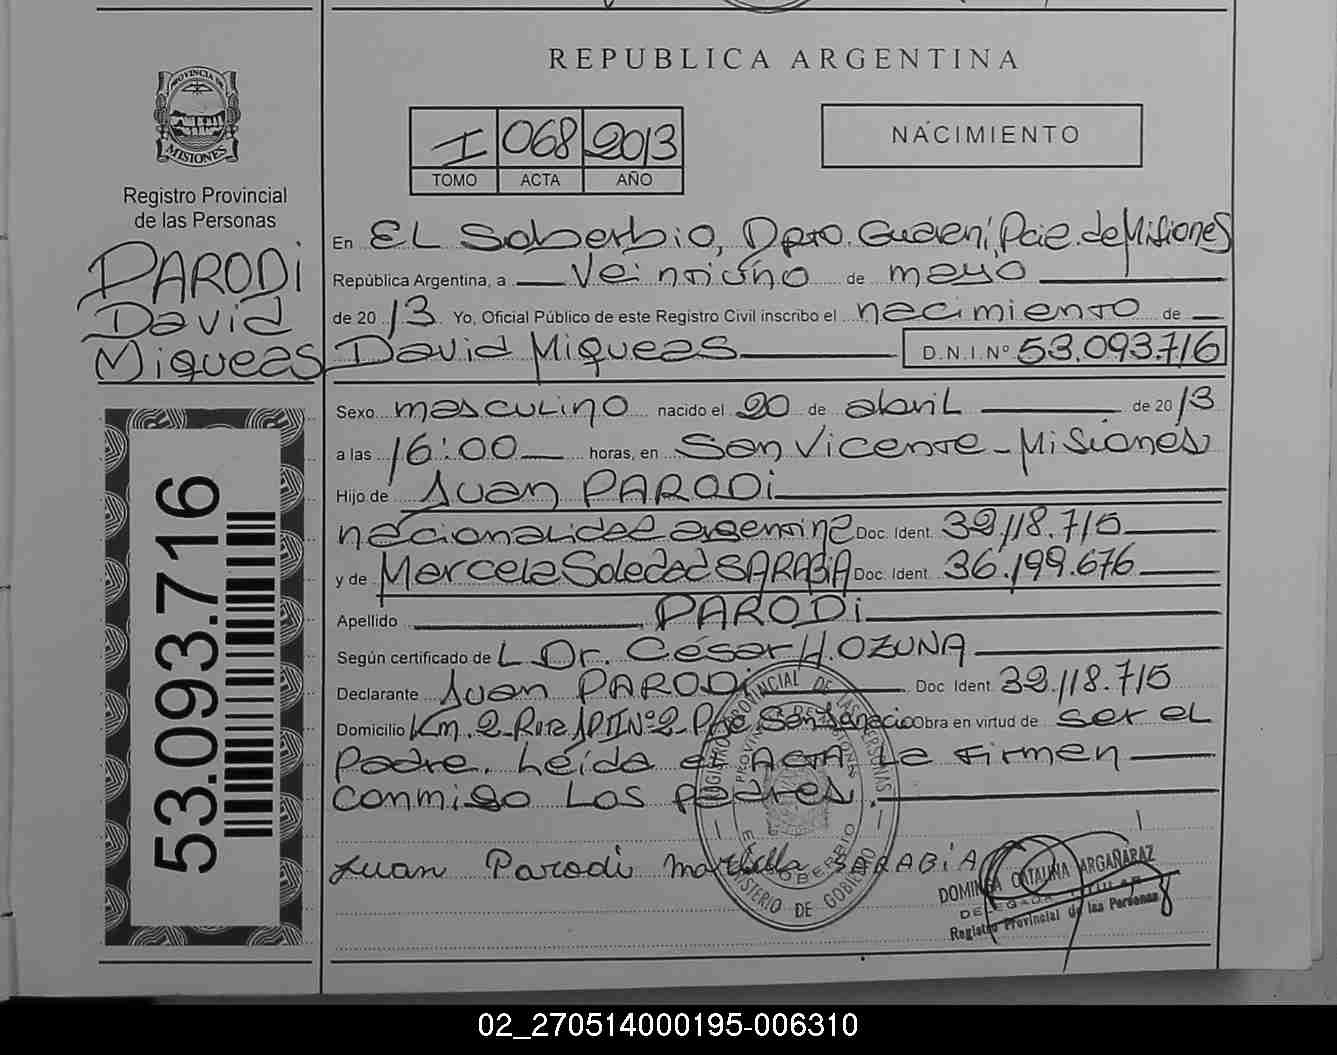 REPUBLICA ARGENTINA
PROVINCIA DE
MISIONES
Registro Provincial
de las Personas
I 068 2013
TOMO ACTA AÑO
NACIMIENTO
PARODI
David
Miqueas
En EL Soberbio, Dpto. Guaraní, Pcia. de Misiones
República Argentina, a veintiuno de mayo
de 2013 Yo, Oficial Público de este Registro Civil inscribo el nacimiento de
David Miqueas D.N.I.Nº 53.093.716
Sexo masculino nacido el 20 de abril de 2013
a las 16:00 horas, en San Vicente - Misiones
Hijo de Juan PARODI
nacionalidad argentina Doc. Ident. 39.118.715
y de Marcela Soledad SARABIA Doc. Ident. 36.199.676
Apellido PARODI
Según certificado de L Dr. César H. OZUNA
Declarante Juan PARODI Doc Ident. 39.118.715
Domicilio Km. 2 - Ruta Nº 2 - Pje San Ignacio Obra en virtud de ser el
Padre. Leída el ACTA La firman
conmigo Los padres.
Juan Parodi SARABIA
REGISTRO PROVINCIAL DE LAS PERSONAS
PROVINCIA DE MISIONES
EL SOBERBIO
MINISTERIO DE GOBIERNO
DOMINGA CATALINA ARGAÑARAZ
DELEGADA TITULAR
Registro Provincial de las Personas
53.093.716
02_270514000195-006310